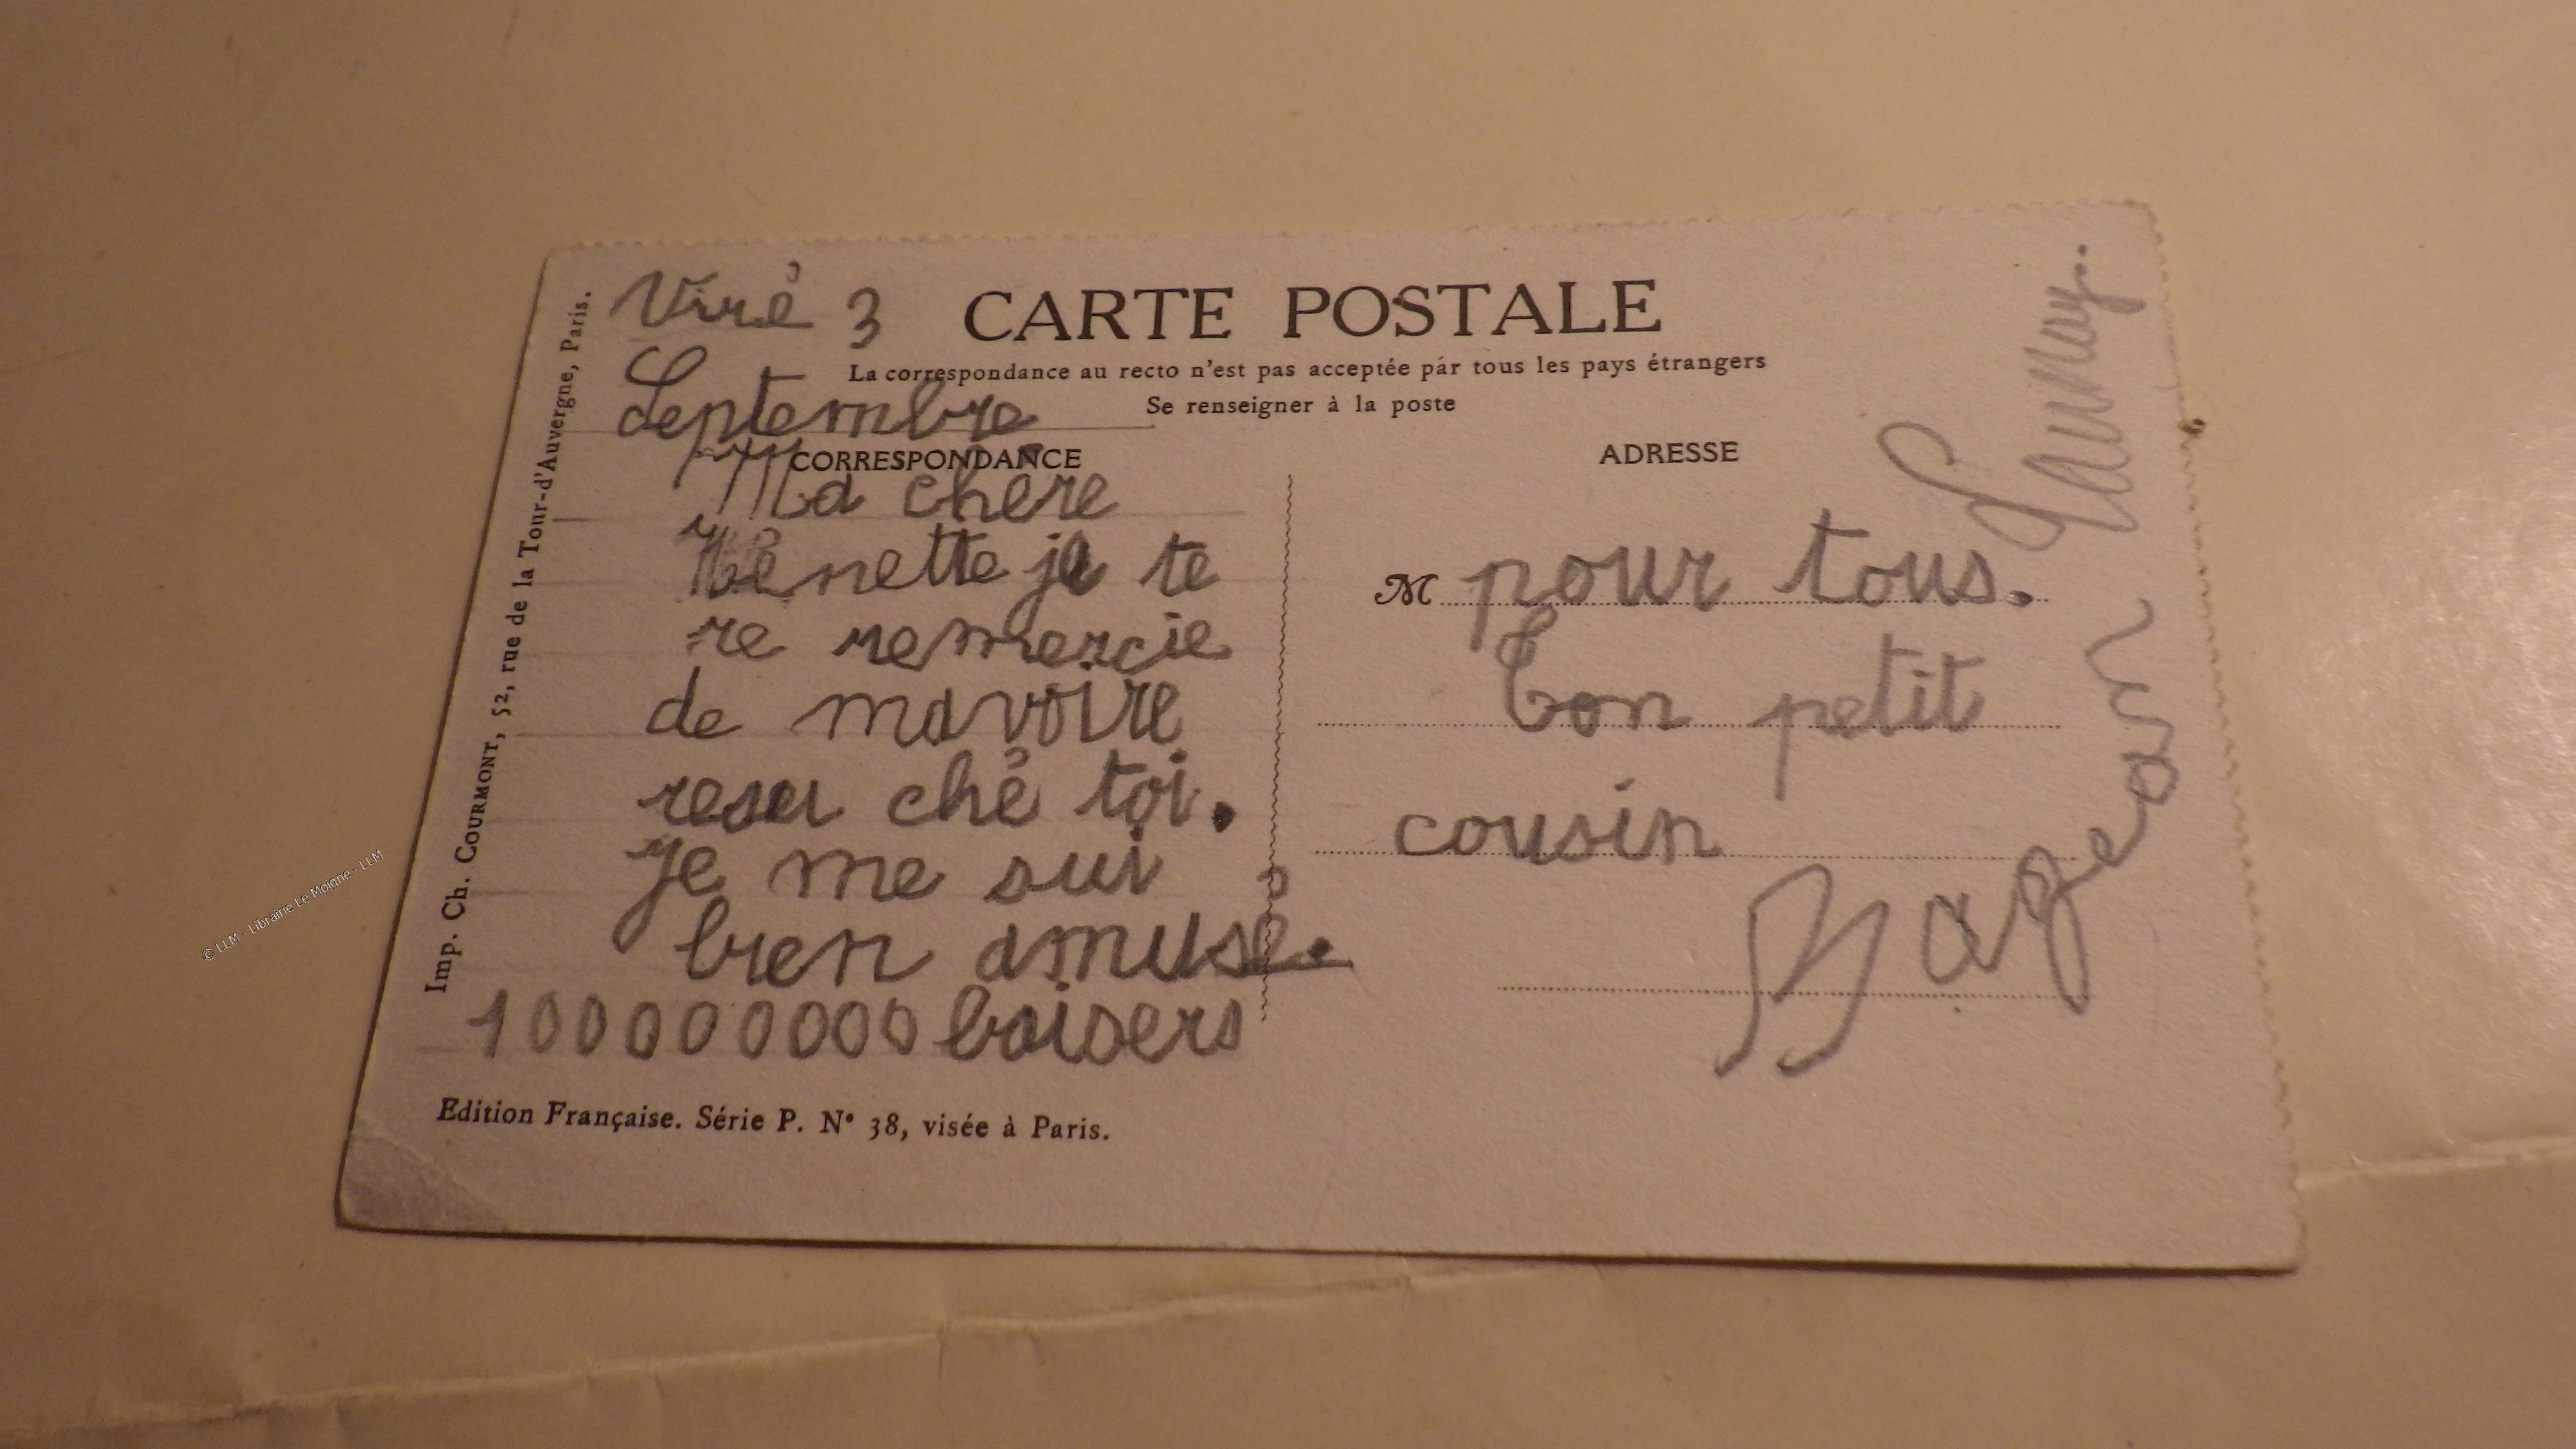 Viré 3
Septembre
CARTE POSTALE
La correspondance au recto n'est pas acceptée par tous les pays étrangers
Se renseigner à la poste
CORRESPONDANCE
Ma chere
Nénette je te
re remercie
de mavoire
reseu ché toi.
Je me sui
bien amusé.
100000000 baisers
ADRESSE
M pour tous.
Ton petit
cousin
Launay.
Imp. Ch. COURMONT, 52, rue de la Tour-d'Auvergne, Paris.
Edition Française. Série P. N° 38, visée à Paris.
© LLM - Librairie Le Moigne - LLM